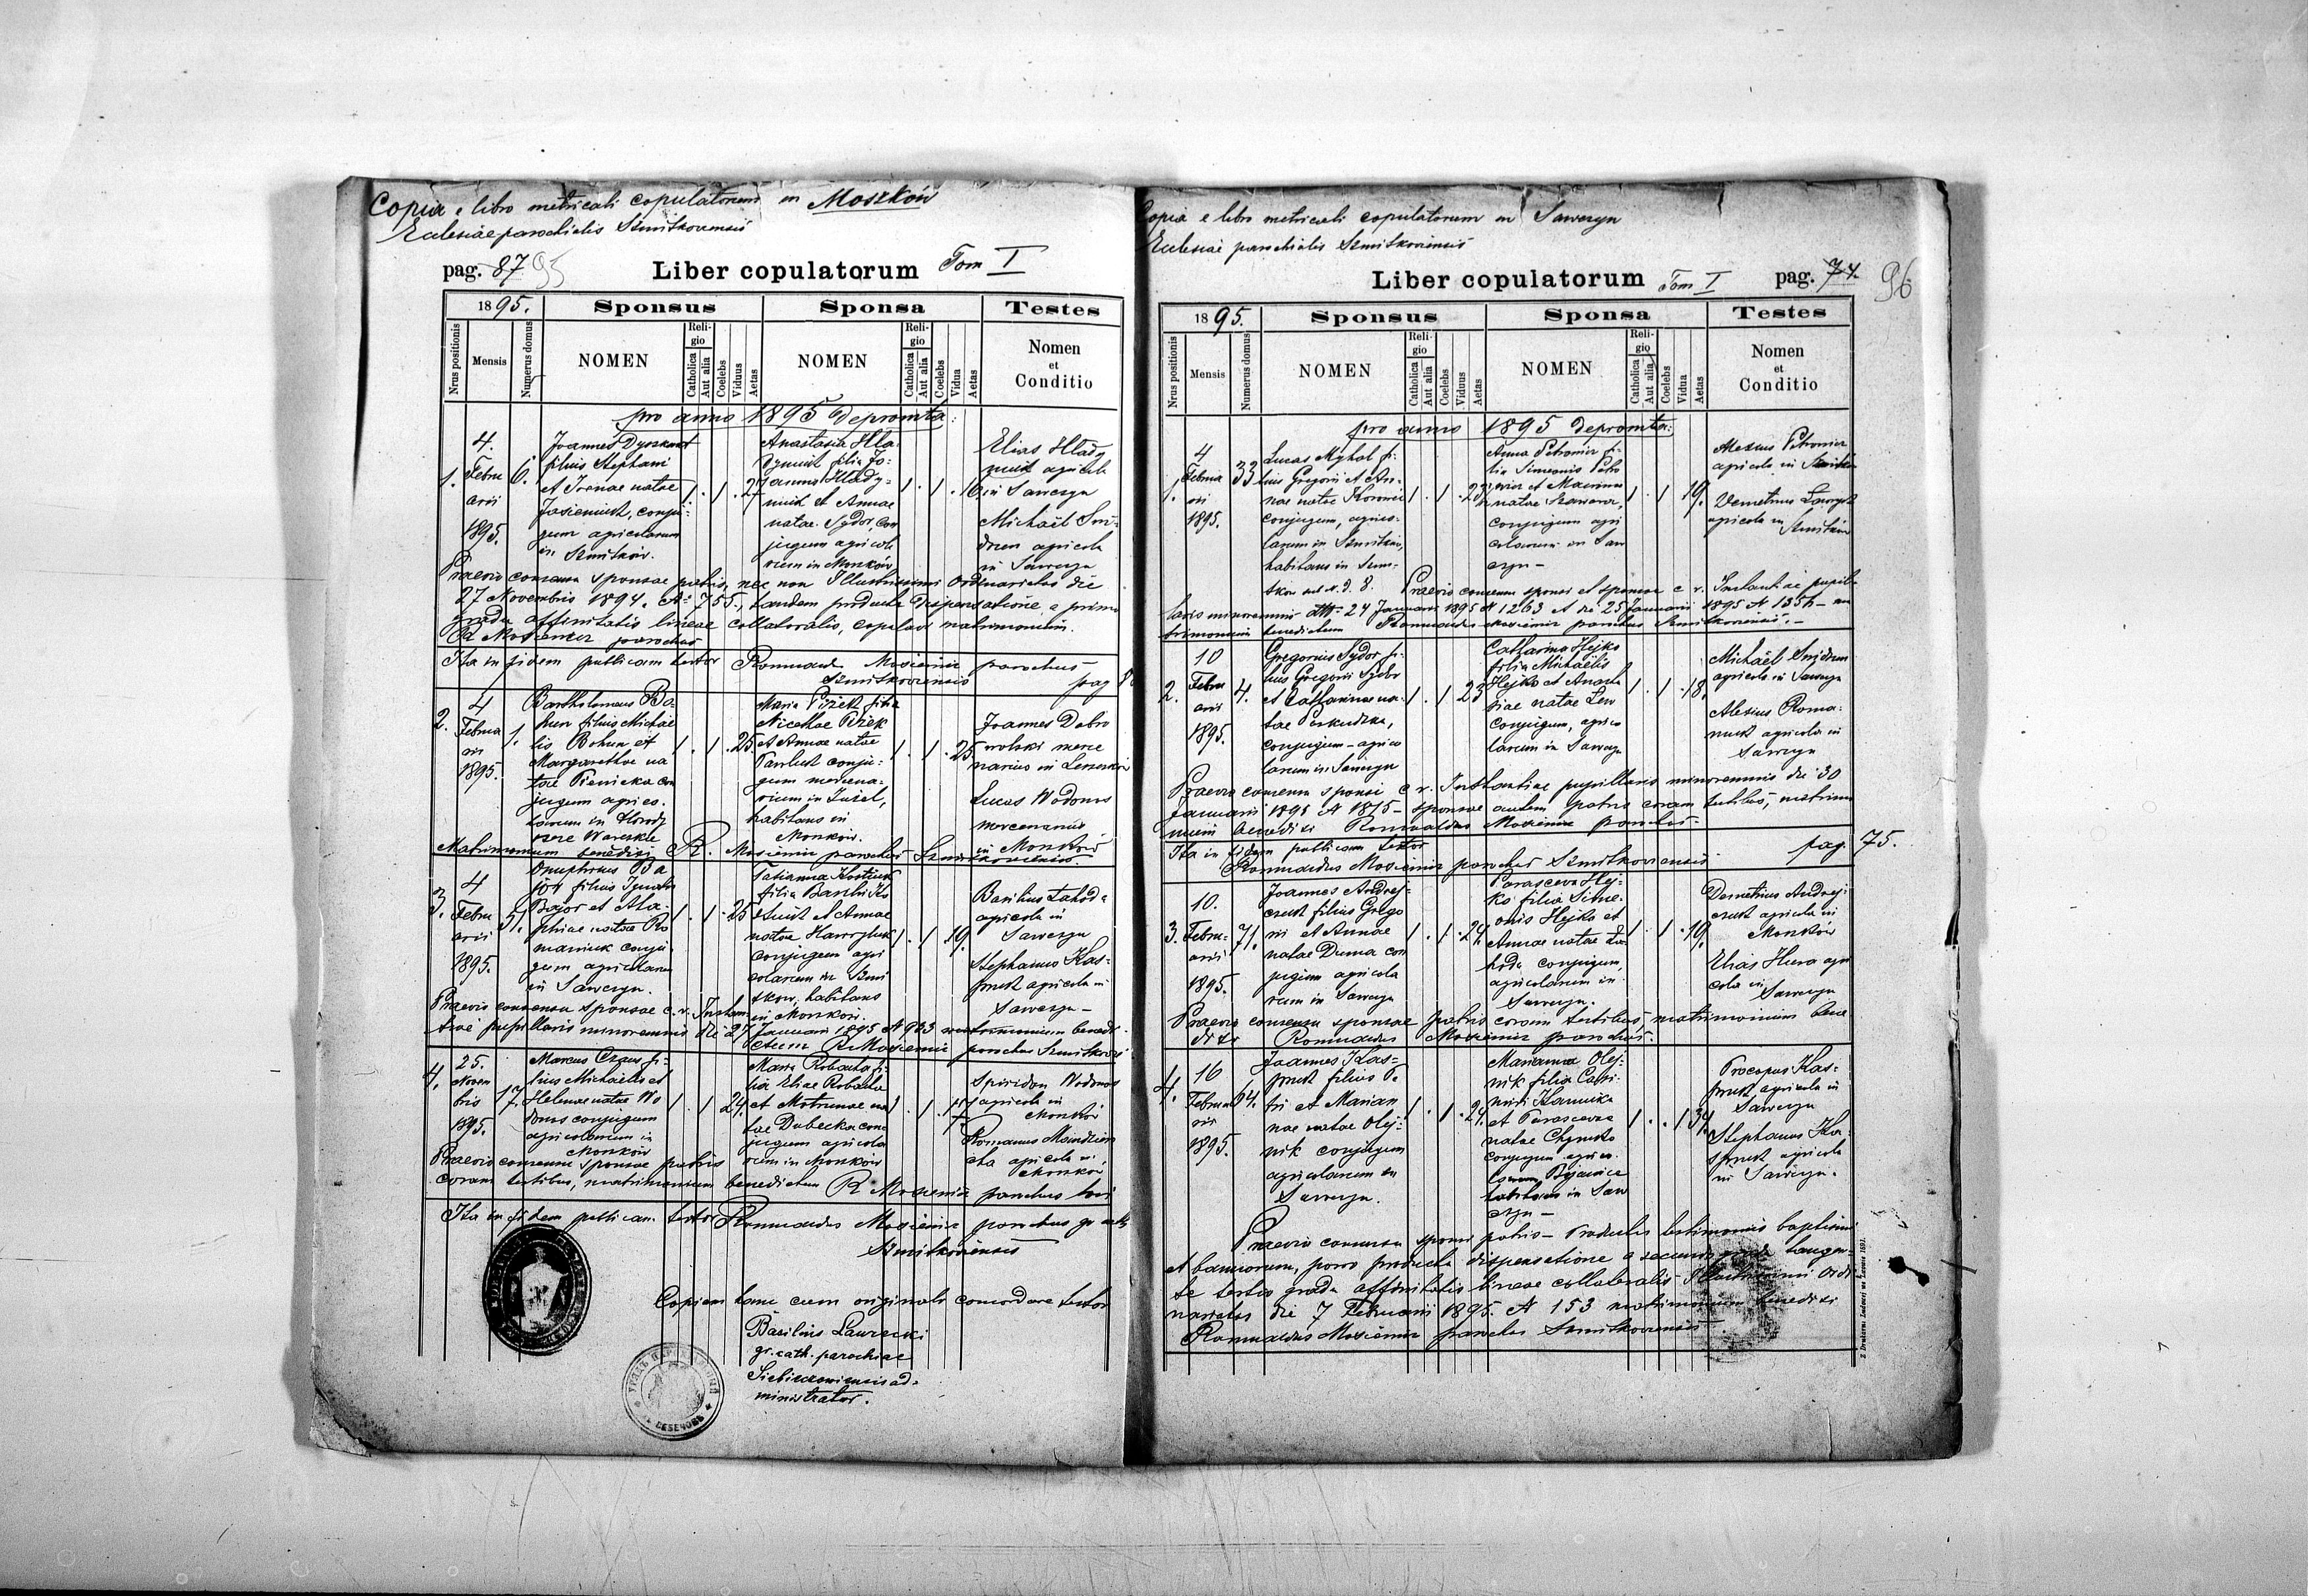 Copia e libro metricali copulatorum in Moszków
Ecclesiae parochialis Szmitkoviensis
pag. 87 95
Liber copulatorum Tom I
1895. Sponsus Sponsa Testes
Nrus positionis
Mensis
Numerus domus
NOMEN
Religio
Catholica
Aut alia
Coelebs
Viduus
Aetas
NOMEN
Religio
Catholica
Aut alia
Coelebs
Vidua
Aetas
Nomen
et
Conditio
pro anno 1895 depromta:
1.
4.
Februarii
1895.
6.
filius Stephani
et Irenae natae
Jasieniuk, conju-
gum agricolarum
in Szmitków.
1. 1. 27
Anastasia Hla-
dyniuk filia Jo-
annis Hlady-
niuk et Annae
natae Sydor, con
jugum agricola
rum in Moszków
1. 1. 16
Elias Hlady
niuk agricola
in Sawczyn
Michaël
agricola
in Sawczyn
Praevio consensu sponsae patris, nec non Illustrissimi Ordinariatus die
27 Novembris 1894. No 755, tandem producta dispensatione a primo
gradu affinitatis lineae collateralis, copulavi matrimonium.
R Mosiewicz parochus
Ita in fidem publicam testor Romuald Mosiewicz parochus
Szmitkoviensis
pag
2.
4
Februa
rii
1895.
1.
Bartholomeus Bo-
hun filius Michae
lis Bohun et
Margarethae na
tae Pienicka con
jugum agrico.
larum in Horod
1. 1. 25
Nicetae
et Annae natae
Pawluk conju-
gum mercena-
rium in
habitans in
Moszków.
1. 1. 25
Joannes Dobro
wolski merce
narius in
Lucas Wodonos
mercenarius
in Moszków
Matrimonium benedixi R. Mosiewicz parochus Szmitkoviensis
3.
4
Febru
arii
1895.
51.
Onuphrius Ba
jor filius Ignatii
Bajor et Aga-
phiae natae Ro
maniuk conju
gum agricolarum
in Sawczyn.
1. 1. 25
Tatianna Kostiuk
filia Basilii Ko
stiuk et Annae
natae Hawryluk
conjugum agri
colarum in Szmi
tkow, habitans
in Moszków.
1. 1. 19.
Basilius Lahoda
agricola in
Sawczyn
Stephanus Kas-
pruk agricola in
Sawczyn
Praevio consensu sponsae c. r. Instan
tiae pupillaris minorennis die 27 Januarii 1895 N 963 matrimonium benedi
ctum R Mosiewicz parochus Szmitkovi
4.
25.
Novem
bris
1895.
17.
Marcus Czaus fi-
lius Michaëlis et
Helenae natae Wo
donos conjugum
agricolarum in
Moszków
1. 1 24.
Maria Robacha fi-
lia Eliae Robacha
et Motrunae na
tae Dubecka con
jugum agricola
rum in Moszków
1. 1. 17.
Spiridon Wodonos
agricola in
Moszków
Romanus
agricola in
Moszków
Praevio consensu sponsae patris
coram testibus, matrimonium benedictum R Mosiewicz parochus loci
Ita in fidem publicam testor Romualdus Mosiewicz parochus gr cath
Szmitkoviensis
Copiam hanc cum originali concordare testor
Basilius Lawrecki
gr. cath. parochiae
ad-
ministrator.
Copia e libro metricali copulatorum in Sawczyn
Ecclesiae parochialis Szmitkoviensis
Liber copulatorum Tom I pag. 74. 96
1895. Sponsus Sponsa Testes
Nrus positionis
Mensis
Numerus domus
NOMEN
Religio
Catholica
Aut alia
Coelebs
Viduus
Aetas
NOMEN
Religio
Catholica
Aut alia
Coelebs
Vidua
Aetas
Nomen
et
Conditio
pro anno 1895 depromta:
1.
4
Februa
rii
1895.
33
Lucas Myhal fi-
lius Gregorii et An-
nae natae
conjugum, agrico-
larum in Szmitków,
habitans in Szmi-
tkow sub N. d. 8.
1. 1. 23
Anna Petrowicz fi-
lia Simeonis Petro
wicz et Macrinae
natae
conjugum agri
colarum in Saw
czyn -
1. 1 19.
Alexius Petrowicz
agricola in Szmitków
Demetrius
agricola in
Szmitków
Praevio consensu sponsi et sponsae c. r. Instantiae pupil-
laris minorennis 24 Januarii 1895 N 1263 et die 25 Januarii 1895 N 1354 - ma
trimonium benedictum Romualdus Mosiewicz parochus Szmitkoviensis. -
2.
10
Febru
arii
1895.
4.
Gregorius Sydor fi-
lius Gregorii Sydor
et Catharinae na-
tae
conjugum - agrico
larum in Sawczyn
1. 1 23
Catharina Hejko
filia Michaëlis
Hejko et Anasta
siae natae Lew
conjugum, agrico
larum in Sawczyn
1. 1. 18.
Michaël
agricola in Sawczyn
Alexius Roma-
niuk agricola in
Sawczyn
Praevio consensu sponsi c. r. Instantiae pupillaris minorennis die 30
Januarii 1895 N 1815 - sponsae autem patris coram testibus, matrimo
nium benedixi Romualdus Mosiewicz parochus.
Ita in fidem publicam testor
Romualdus Mosiewicz parochus Szmitkoviensis
pag. 75.
3.
10.
Febru-
arii
1895.
71.
Joannes Andrej-
czuk filius Grego
rii et Annae
natae Duma con
jugum agricola
rum in Sawczyn
1. 1. 24.
Parasceva Hej-
ko filia Sime-
onis Hejko et
Annae natae La-
hoda conjugum,
agricolarum in
Sawczyn.
1. 1. 19.
Demetrius Andrej-
czuk agricola in
Moszków
Elias Hura agri
cola in
Sawczyn
Praevio consensu sponsae patris coram testibus matrimonium bene
dixi Romualdus Mosiewicz parochus.
4.
16
Februa
rii
1895.
64.
Joannes Kas-
pruk filius Pe-
tri et Marian
nae natae Olej-
nik conjugum
agricolarum in
Sawczyn.
1. 1. 24.
Marianna Olej-
nik filia Casi-
miri
et Parascevae
natae
conjugum agrico-
larum
habitans in Saw
czyn -
1. . 1 34.
Procopus Kas-
pruk agricola in
Sawczyn
Stephanus Ka-
spruk agricola
in Sawczyn.
Praevio consensu sponsi patris - Productis testimoniis baptismi
et bannorum, porro producta dispensatione a secundo gradu tangen-
te tertio gradu affinitatis lineae collateralis Illustrissimi Ordi
nariatus die 7 Februarii 1895. N 153 matrimonium benedixi
Romualdus Mosiewicz parochus Szmitkoviensis